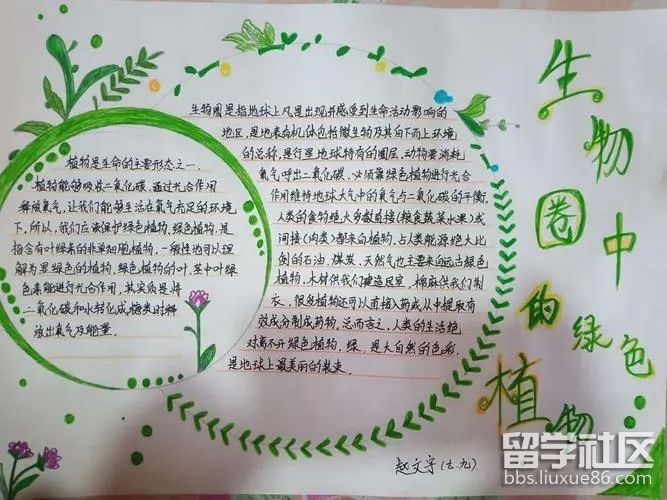 生物圈中的绿色植物
植物是生命的主要形态之一.
植物能够吸收二氧化碳.通过光合作用
释放氧气,让我们能够生活在氧气充足的环境
下.所以,我们应该保护绿色植物.绿色植物.是
指含有叶绿素的非单细胞植物.一般性也可以理
解为是绿色的植物.绿色植物的叶.茎中叶绿
色素能进行光合作用.其实质是将
二氧化碳和水转化成糖类时释
放出氧气及能量.
生物圈是指地球上凡是出现并感受到生命活动影响的
地区.是地表有机体包括微生物及其自下而上环境
的总称,是行星地球特有的圈层.动物要消耗
氧气呼出二氧化碳.必须靠绿色植物进行光合
作用维持地球大气中的氧气与二氧化碳的平衡.
人类的食物绝大多数直接(粮食蔬菜水果)或
间接(肉类)都来自植物.占人类能源绝大比
例的石油.煤炭.天然气也主要来自远古绿色
植物.木材供我们建造居室.棉麻供我们制
衣.很多植物还可以直接入药或从中提取有
效成分制成药物.总而言之,人类的生活绝
对离不开绿色植物.绿.是大自然的色彩.
是地球上最美丽的装束.
赵文宇(七.九)
留学社区
bbs.liuxue86.com